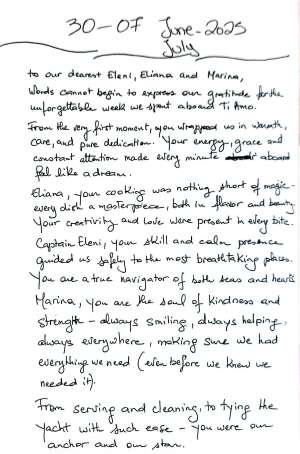 30-07 June-2025
July
to our dearest Eleni, Eliana and Marina,
Words cannot begin to express our gratitude for the
unforgettable week we spent aboard Ti Amo.
From the very first moment, you wrapped us in warmth,
care, and pure dedication. Your energy, grace and
constant attention made every minute aboard
feel like a dream.
Eliana, your cooking was nothing short of magic-
every dish a masterpiece, both in flavor and beauty.
Your creativity and love were present in every bite.
Captain Eleni, your skill and calm presence
guided us safely to the most breathtaking places.
You are a true navigator of both seas and hearts
Marina, you are the soul of kindness and
strength - always smiling, always helping,
always everywhere, making sure we had
everything we need (even before we knew we
needed it).
From serving and cleaning, to tying the
yacht with such ease - you were our
anchor and our star.